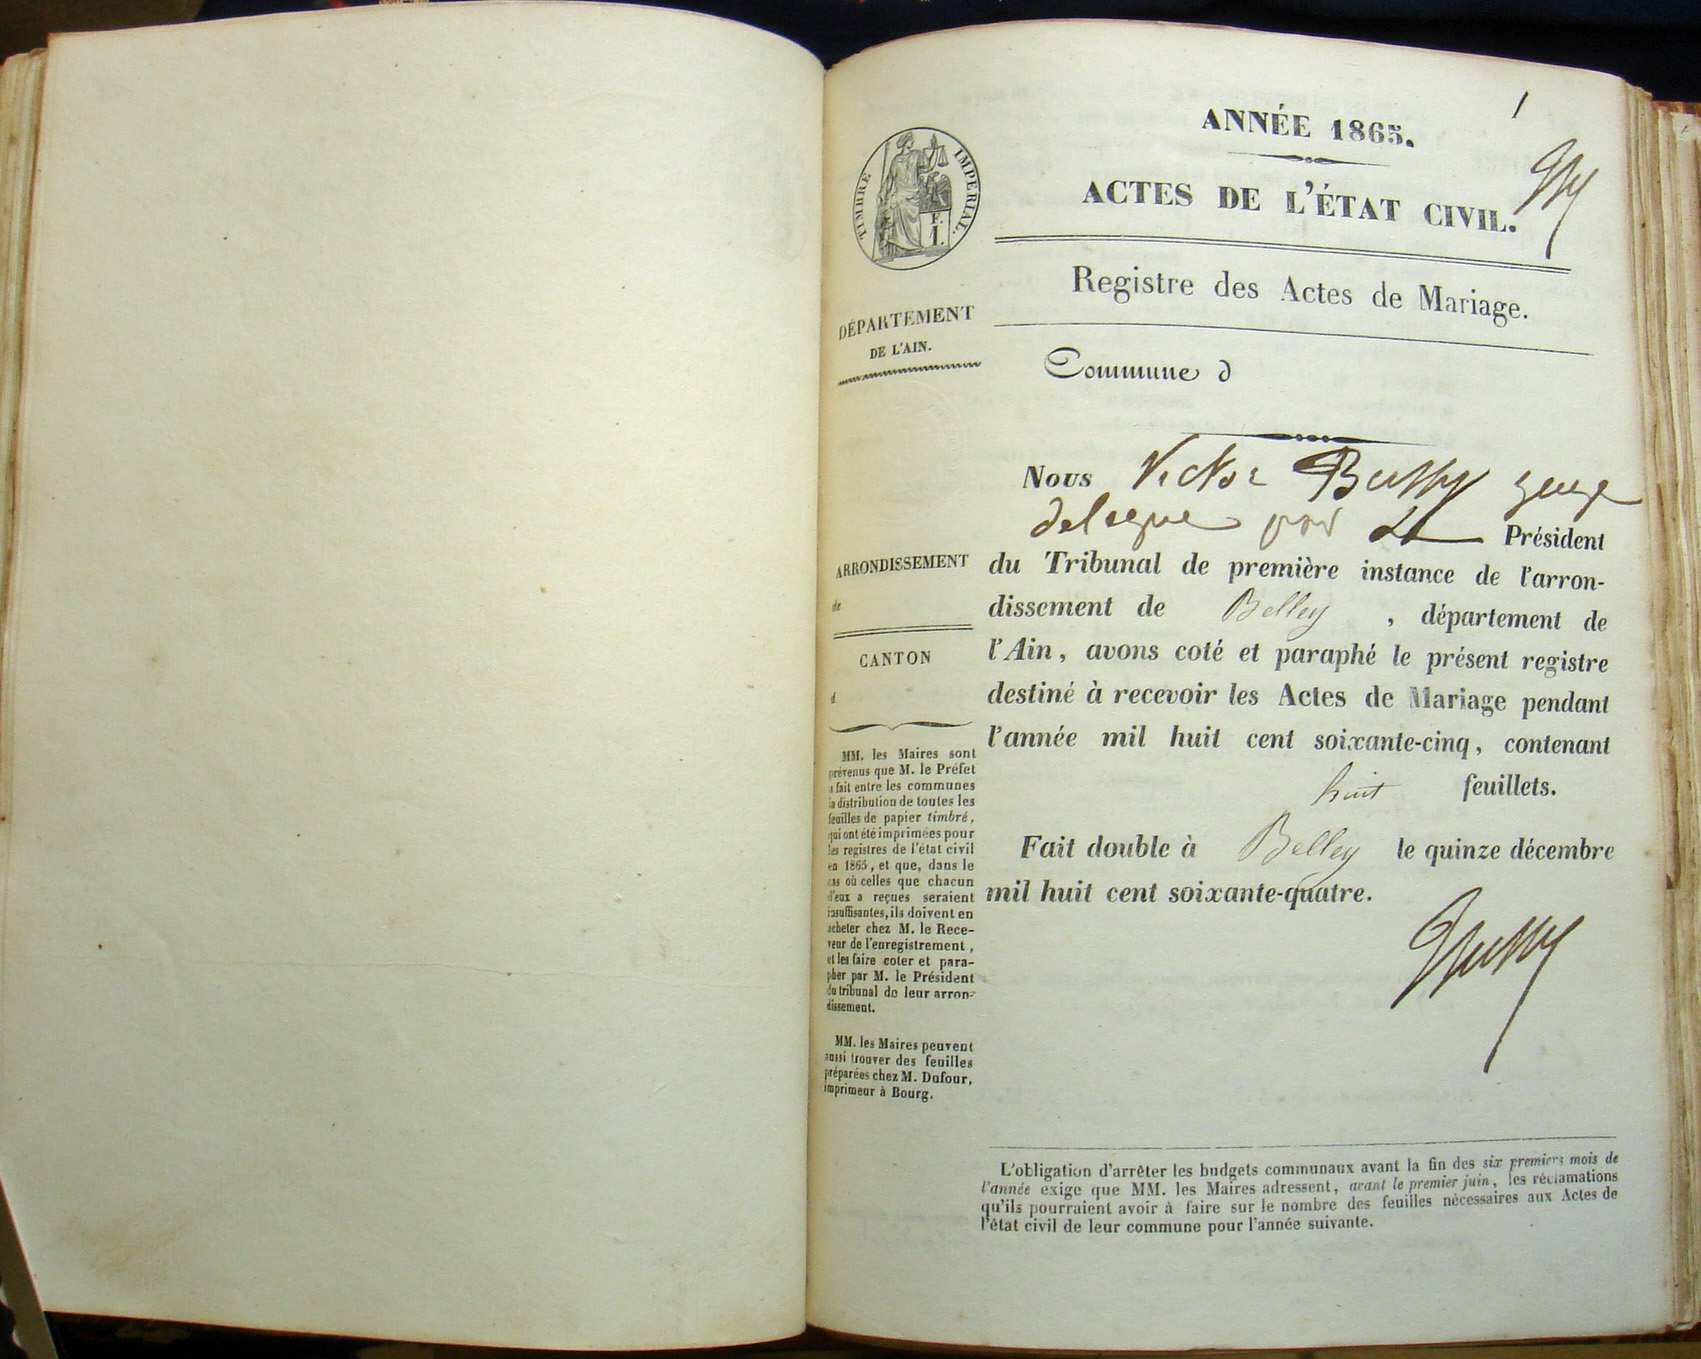 1
ANNÉE 1865.
ACTES DE L'ÉTAT CIVIL.
TIMBRE IMPERIAL.
F.
1.
Registre des Actes de Mariage.
DÉPARTEMENT
DE L'AIN.
Commune d
Nous Victor Bussy juge
delegue par Le Président
du Tribunal de première instance de l'arron-
dissement de Belley, département de
l'Ain, avons coté et paraphé le présent registre
destiné à recevoir les Actes de Mariage pendant
l'année mil huit cent soixante-cinq, contenant
huit feuillets.
Fait double à Belley le quinze décembre
mil huit cent soixante-quatre.
Bussy
ARRONDISSEMENT
de
CANTON
d
MM. les Maires sont
prévenus que M. le Préfet
a fait entre les communes
la distribution de toutes les
feuilles de papier timbré,
qui ont été imprimées pour
les registres de l'état civil
en 1865, et que, dans le
cas où celles que chacun
d'eux a reçues seraient
insuffisantes, ils doivent en
acheter chez M. le Rece-
veur de l'enregistrement,
et les faire coter et para-
pher par M. le Président
du tribunal de leur arron-
dissement.
MM. les Maires peuvent
aussi trouver des feuilles
préparées chez M. Dufour,
imprimeur à Bourg.
L'obligation d'arrêter les budgets communaux avant la fin des six premiers mois de
l'année exige que MM. les Maires adressent, avant le premier juin, les réclamations
qu'ils pourraient avoir à faire sur le nombre des feuilles nécessaires aux Actes de
l'état civil de leur commune pour l'année suivante.